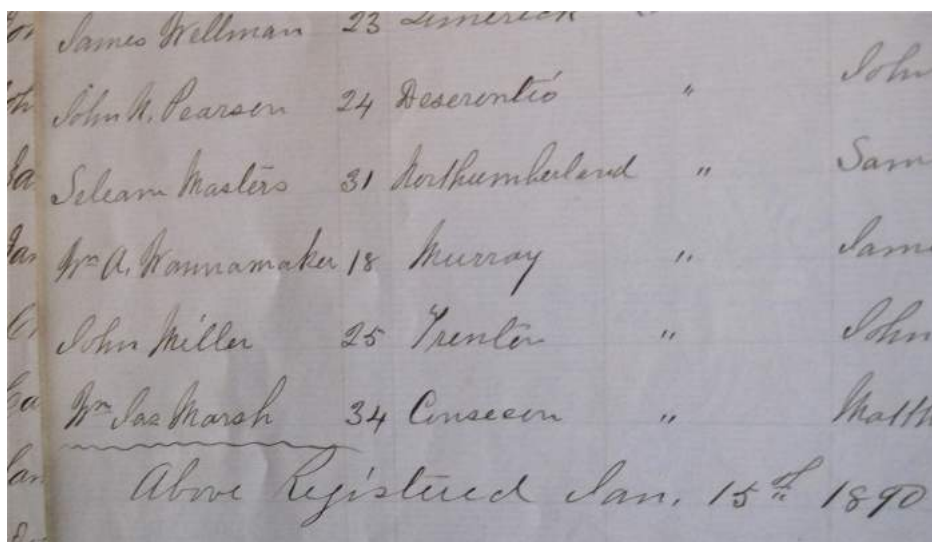 James Wellman 23 Limerick
John N. Pearson 24 Deseronto " John
Seleam Masters 31 Northumberland " Sam
Wm A. Wannamaker 18 Murray " Jame
John Miller 25 Trenton " John
Wm Jas Marsh 34 Consecon " Matth
Above Registered Jan. 15th 1890